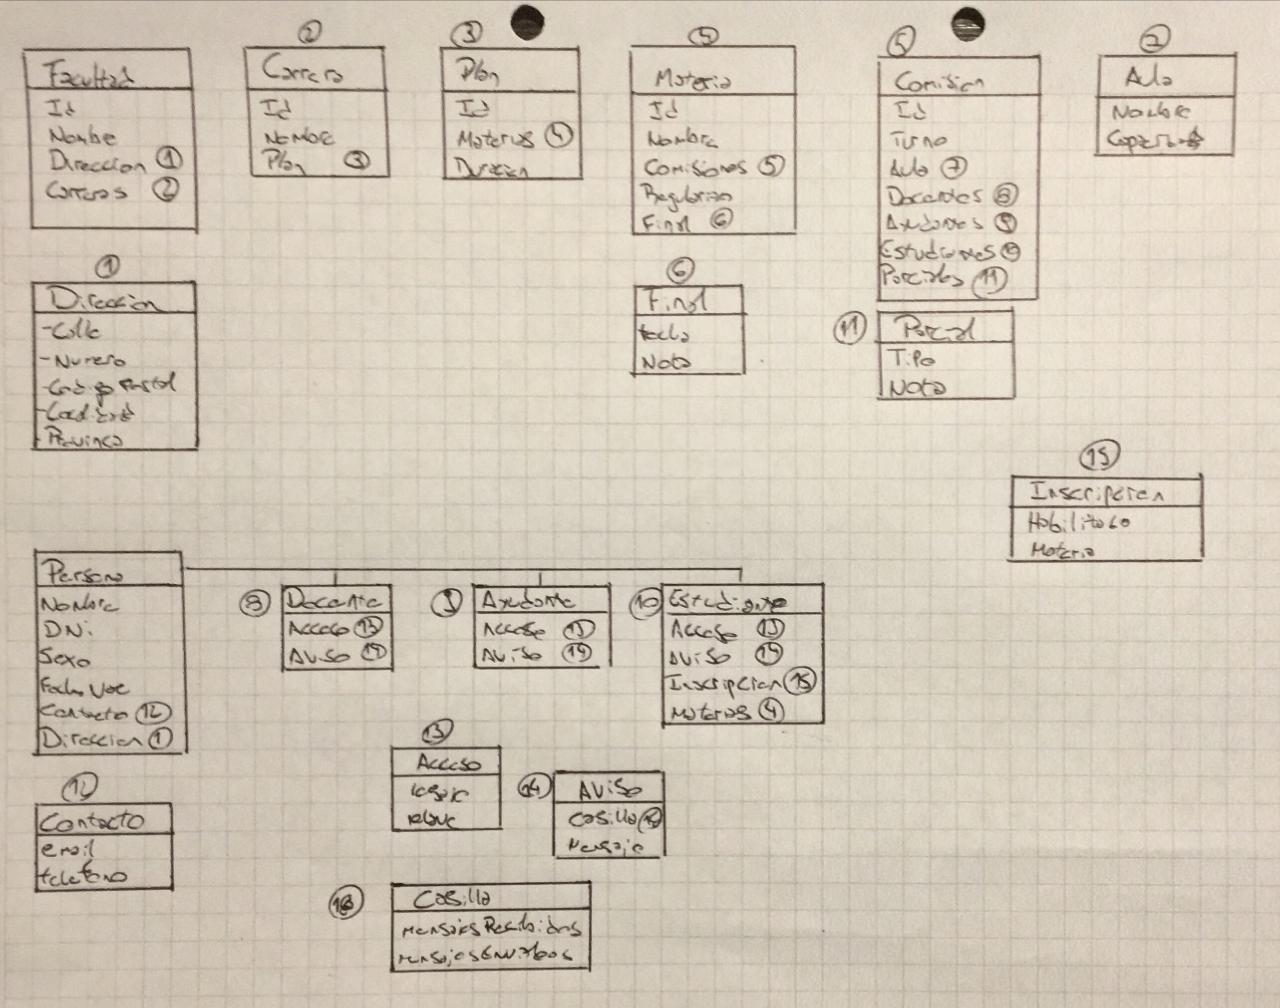 Facultad
Id
Nombre
Direccion 1
Carreras 2
2
Carrera
Id
Nombre
Plan 3
3
Plan
Id
Materias 4
Duracion
Materia
Id
Nombre
Comisiones 5
Final 6
5
Comision
Id
Turno
Aula 7
Docentes 8
Ayudantes 9
Estudiantes
Parciales 11
7
Aula
Nombre
1
Direccion
-Calle
-Numero
-Codigo Postal
-Localidad
-Provincia
6
Final
fecha
Nota
11
Parcial
Tipo
Nota
15
Inscripcion
Habilitado
Materia
Persona
Nombre
DNi.
Sexo
Fecha Nac
Contacto 12
Direccion 1
8
Docente
Acceso 13
Aviso 14
9
Ayudante
Acceso 13
Aviso 14
10
Estudiante
Acceso 13
Aviso 14
Inscripcion 15
Materias 4
12
Contacto
email
telefono
13
Acceso
clave
14
Aviso
Casilla
Mensaje
Casilla
MensajesRecibidos
MensajesEnviados